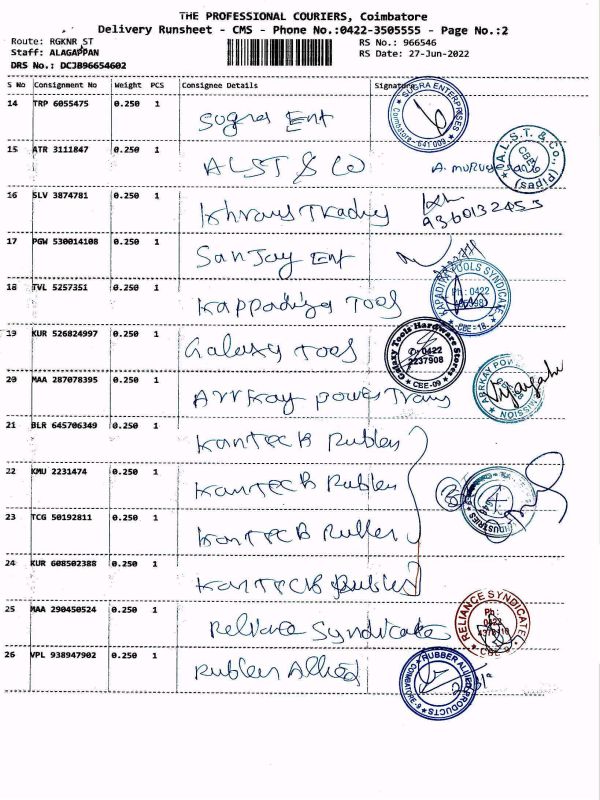 THE PROFESSIONAL COURIERS, Coimbatore
Delivery Runsheet - CMS - Phone No.:0422-3505555 - Page No.:2
Route: RGKNR_ST RS No.: 966546
Staff: ALAGAPPAN RS Date: 27-Jun-2022
DRS No.: DCJB96654602
S No Consignment No Weight PCS Consignee Details Signature
14 TRP 6055475 0.250 1 Sugra Ent SUGRA ENTERPRISES Coimbatore - 641 009
15 ATR 3111847 0.250 1 ALST & Co A. A.L.S.T. & Co., (Pipes) CBE
16 SLV 3874781 0.250 1 Trading 9360132453
17 PGW 530014108 0.250 1 Sanjay Ent
18 TVL 5257351 0.250 1 Kappadiya Tools KAPADIA TOOLS SYNDICATE Ph : 0422 CBE-18.
19 KUR 526824997 0.250 1 Galaxy Tools Galaxy Tools Hardware Stores 0422 2237908 CBE-09
20 MAA 287078395 0.250 1 Arrkay power Trans ARRKAY POWER
21 BLR 645706349 0.250 1 Kanteck Rubber
22 KMU 2231474 0.250 1 Kanteck Rubber INDUSTRIES
23 TCG 50192811 0.250 1 Kanteck Rubber
24 KUR 608502388 0.250 1 Kanteck Rubber
25 MAA 290450524 0.250 1 Reliance Syndicate RELIANCE SYNDICATE Ph : 0422 CBE
26 VPL 938947902 0.250 1 Rubber Allied RUBBER ALLIED PRODUCTS COIMBATORE-9